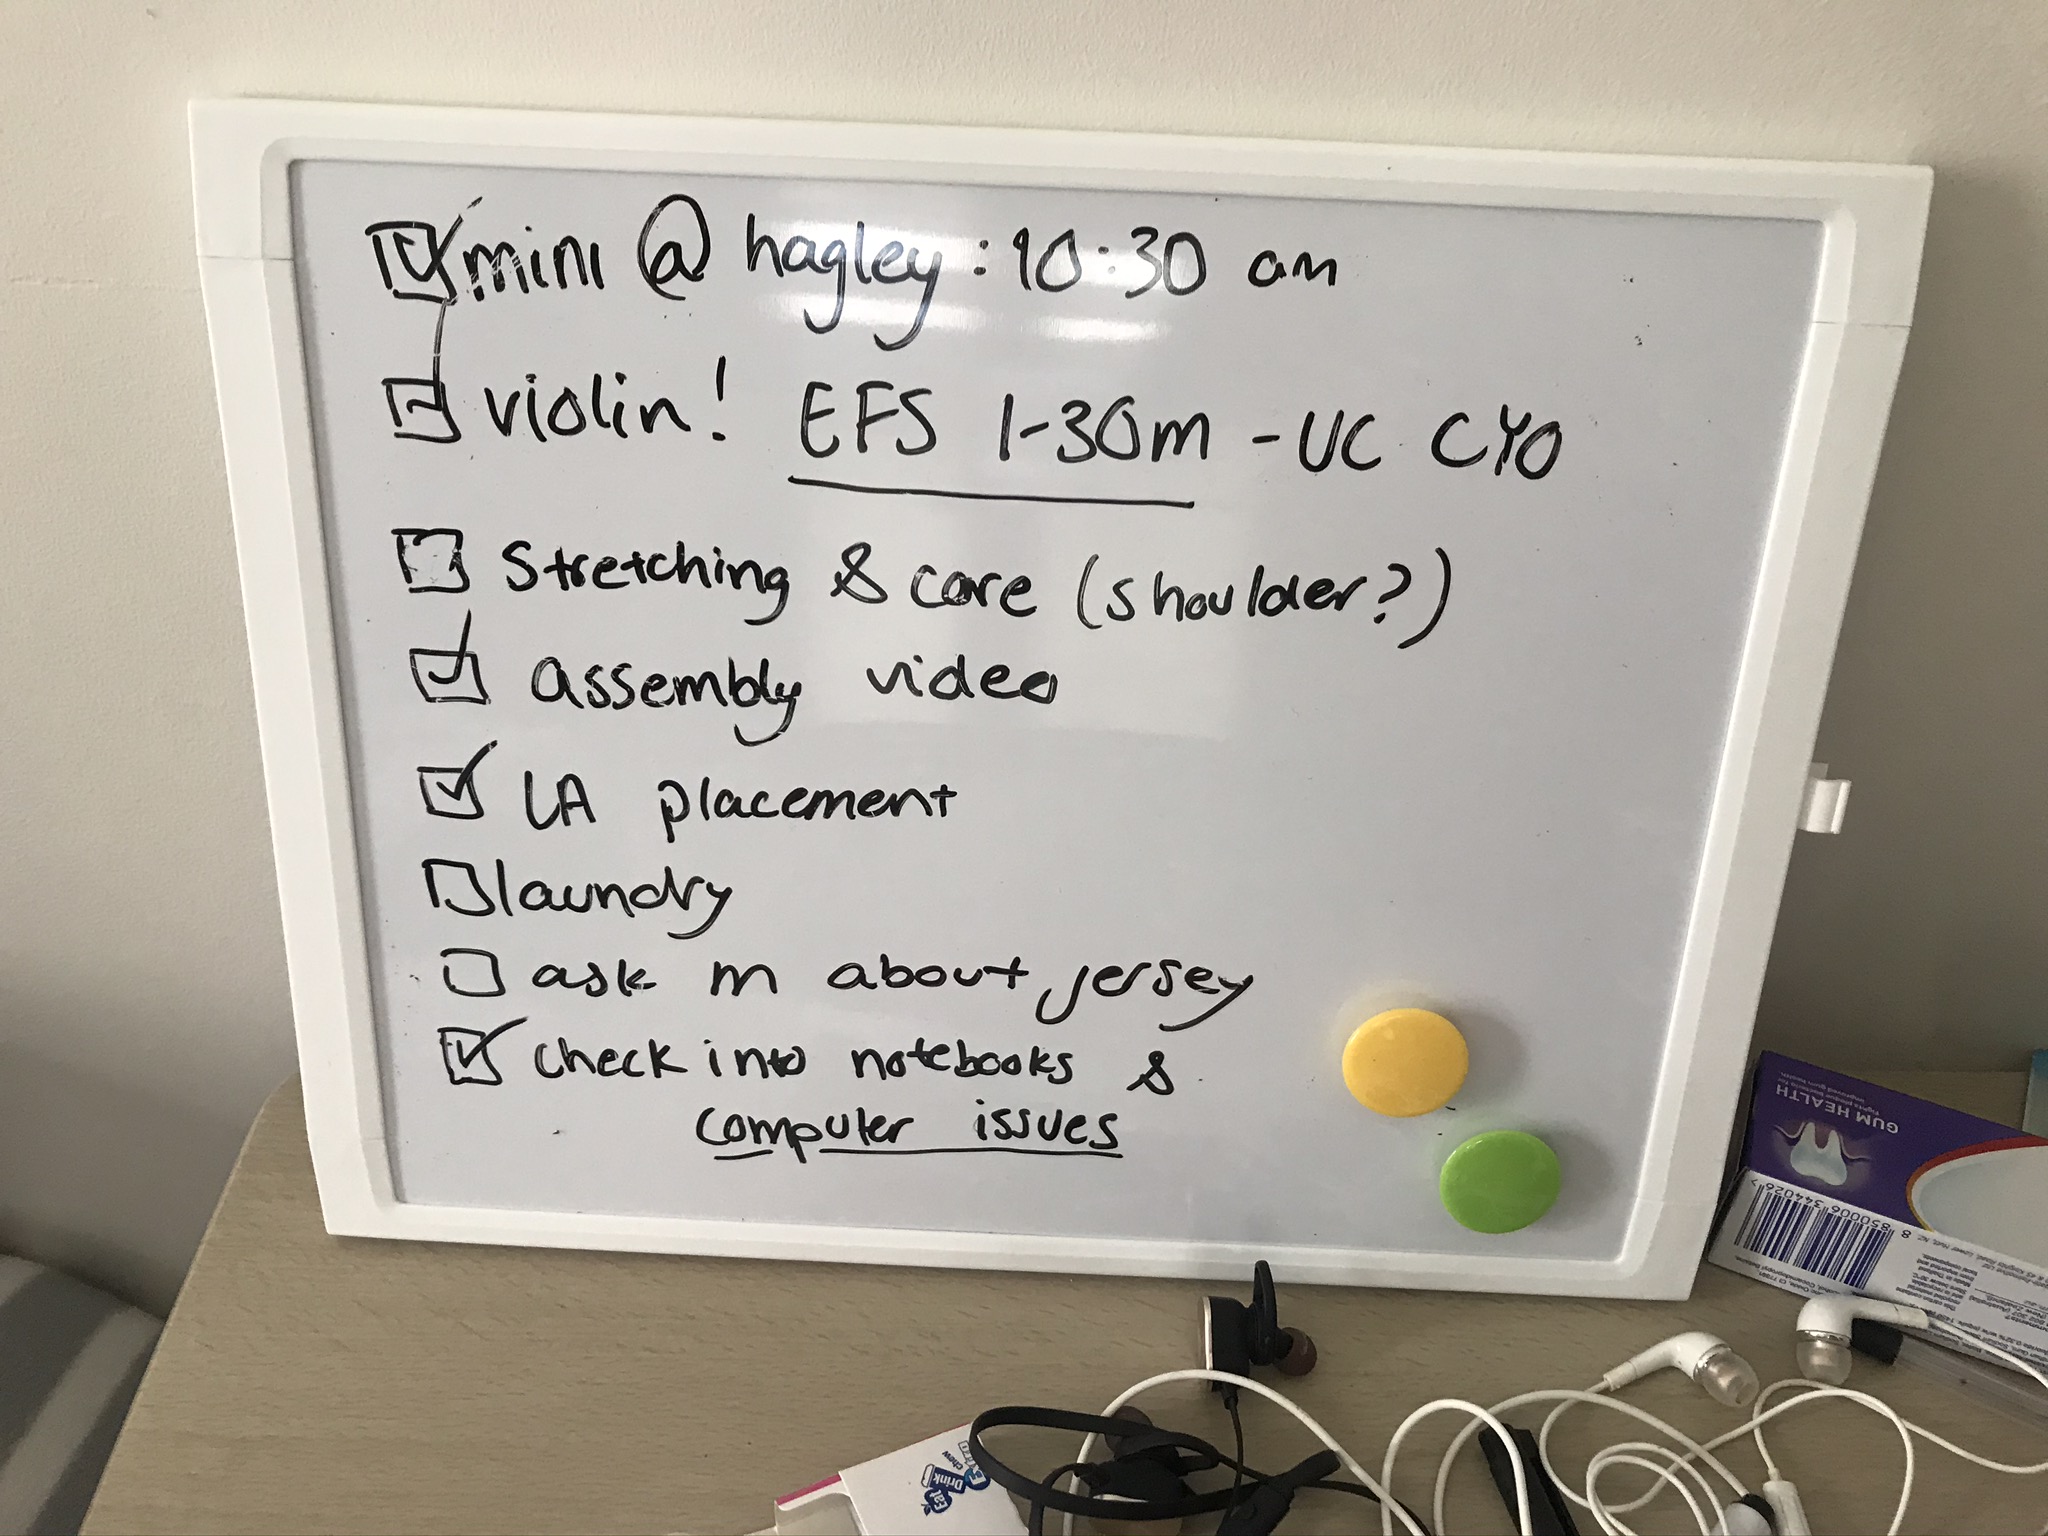 mini @ hagley : 10:30 am
violin! EFS 1-30m - UC CYO
Stretching & care (shoulder?)
assembly video
LA placement
laundry
ask m about jersey
check into notebooks &
computer issues
GUM HEALTH
8 850006 344026 >
Eat
Drink